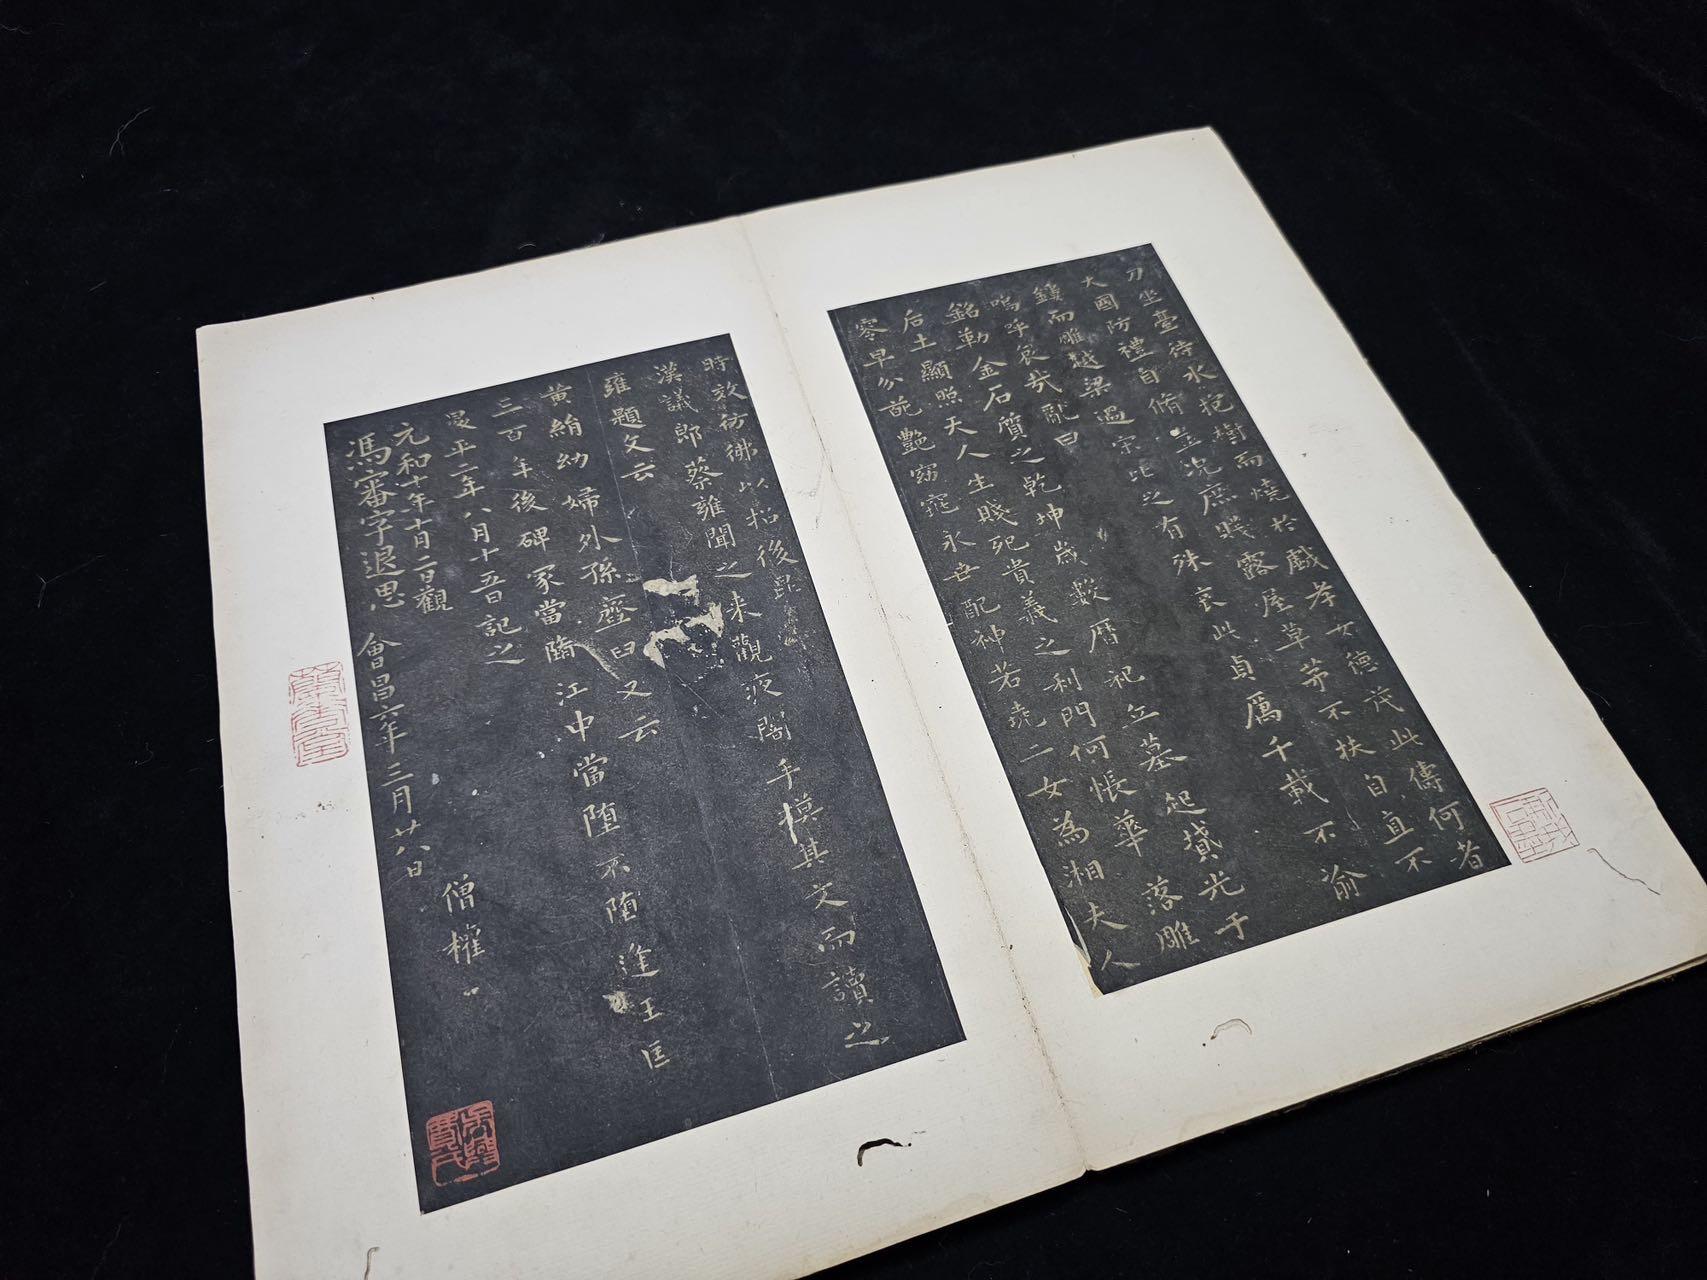 刀坐臺待水抱樹而燒於戲孝女德茂此儔何者
大國防禮自脩豈況庶賤露屋草茅不扶自直不
鏤而雕越梁過宋比之有殊哀此貞厲千載不渝
嗚呼哀哉亂曰
銘勒金石質之乾坤歲數曆祀立墓起墳光于
后土顯照夫人生賤死貴義之利門何悵華落雕
零早分葩艷窈窕永世配神若堯二女為湘夫人
時效彷彿以招後昆
漢議郎蔡雍聞之来觀夜闇手摸其文而讀之
雍題文云
黃絹幼婦外孫齏臼又云
三百年後碑冢當墮江中當墮不墮逢王匡
昇平二年八月十五日記之
僧權
元和十年十月二日觀
馮審字退思 會昌六年三月廿八日